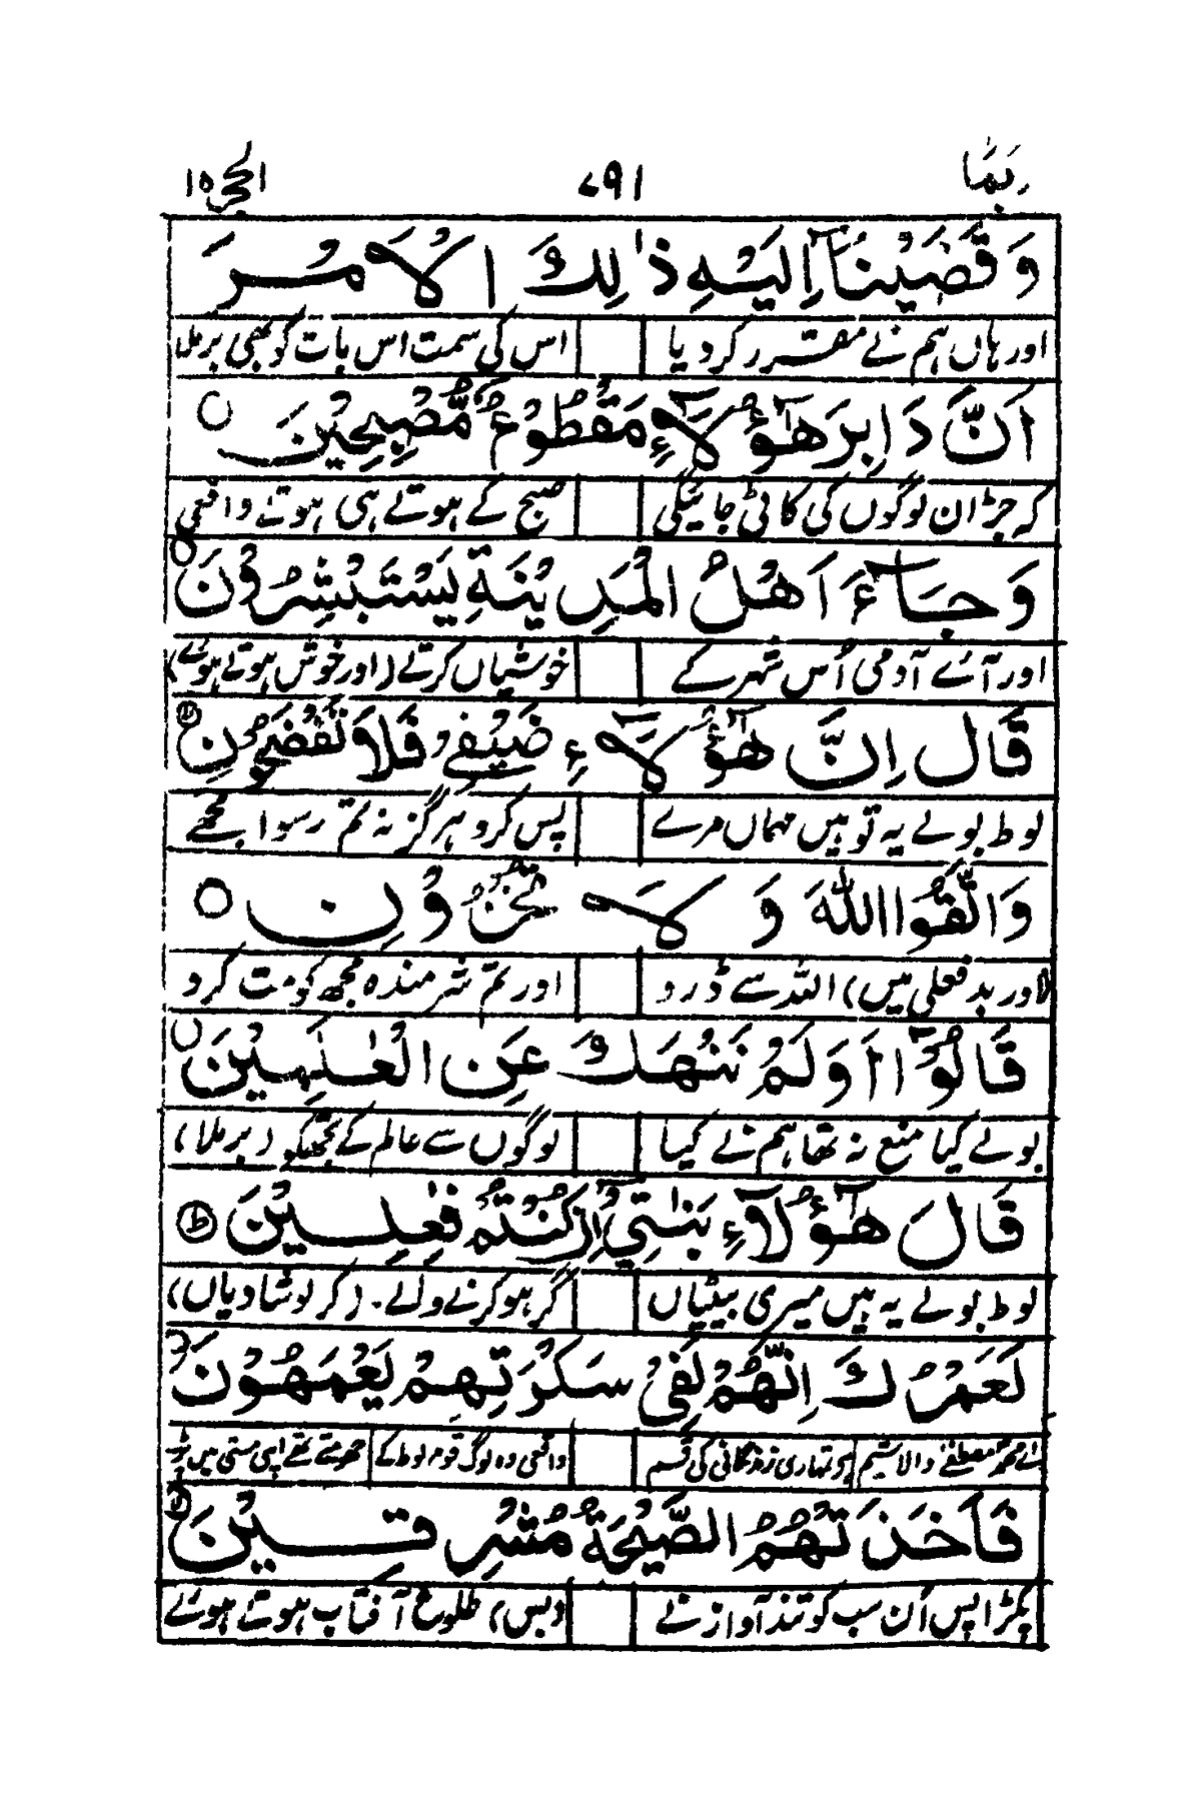 ربما ۷۹۱ الحجر ۱۵
وَقَضَيْنَآ اِلَيْهِ ذٰلِكَ الْاَمْرَ
اور ہاں ہم نے مقرر کر دیا اس کی سمت اس بات کو بھی برملا
اَنَّ دَابِرَ هٰٓؤُلَآءِ مَقْطُوْعٌ مُّصْبِحِيْنَ ○
کہ جڑ ان لوگوں کی کاٹی جائیگی صبح کے ہوتے ہی ہوتے واقعی
وَجَآءَ اَهْلُ الْمَدِيْنَةِ يَسْتَبْشِرُوْنَ ○
اور آئے آدمی اُس شہر کے خوشیاں کرتے (اور خوش ہوتے ہوئے)
قَالَ اِنَّ هٰٓؤُلَآءِ ضَيْفِيْ فَلَا تَفْضَحُوْنِ ۙ
لوط بولے یہ تو ہیں مہماں مرے پس کرو ہرگز نہ تم رسوا مجھے
وَاتَّقُوا اللّٰهَ وَلَا تُخْزُوْنِ ○
(اور بد فعلی میں) اللہ سے ڈرو اور تم شرمندہ مجھ کو مت کرو
قَالُوْٓا اَوَلَمْ نَنْهَكَ عَنِ الْعٰلَمِيْنَ ○
بولے کیا منع نہ تھا ہم نے کیا لوگوں سے عالم کے تجھکو (برملا)
قَالَ هٰٓؤُلَآءِ بَنٰتِيْٓ اِنْ كُنْتُمْ فٰعِلِيْنَ ۭ
لوط بولے یہ ہیں میری بیٹیاں گر ہو کرنے والے۔ (کر لو شادیاں)
لَعَمْرُكَ اِنَّهُمْ لَفِيْ سَكْرَتِهِمْ يَعْمَهُوْنَ ○
اے محمد مصطفےٰ والا شیم ہو تمہاری زندگانی کی قسم واقعی وہ لوگ قوم لوط کے جھومتے تھے اپنی مستی میں
فَاَخَذَتْهُمُ الصَّيْحَةُ مُشْرِقِيْنَ ۙ
پکڑا پس اُن سب کو تند آواز نے (بس) طلوع آفتاب ہوتے ہوئے